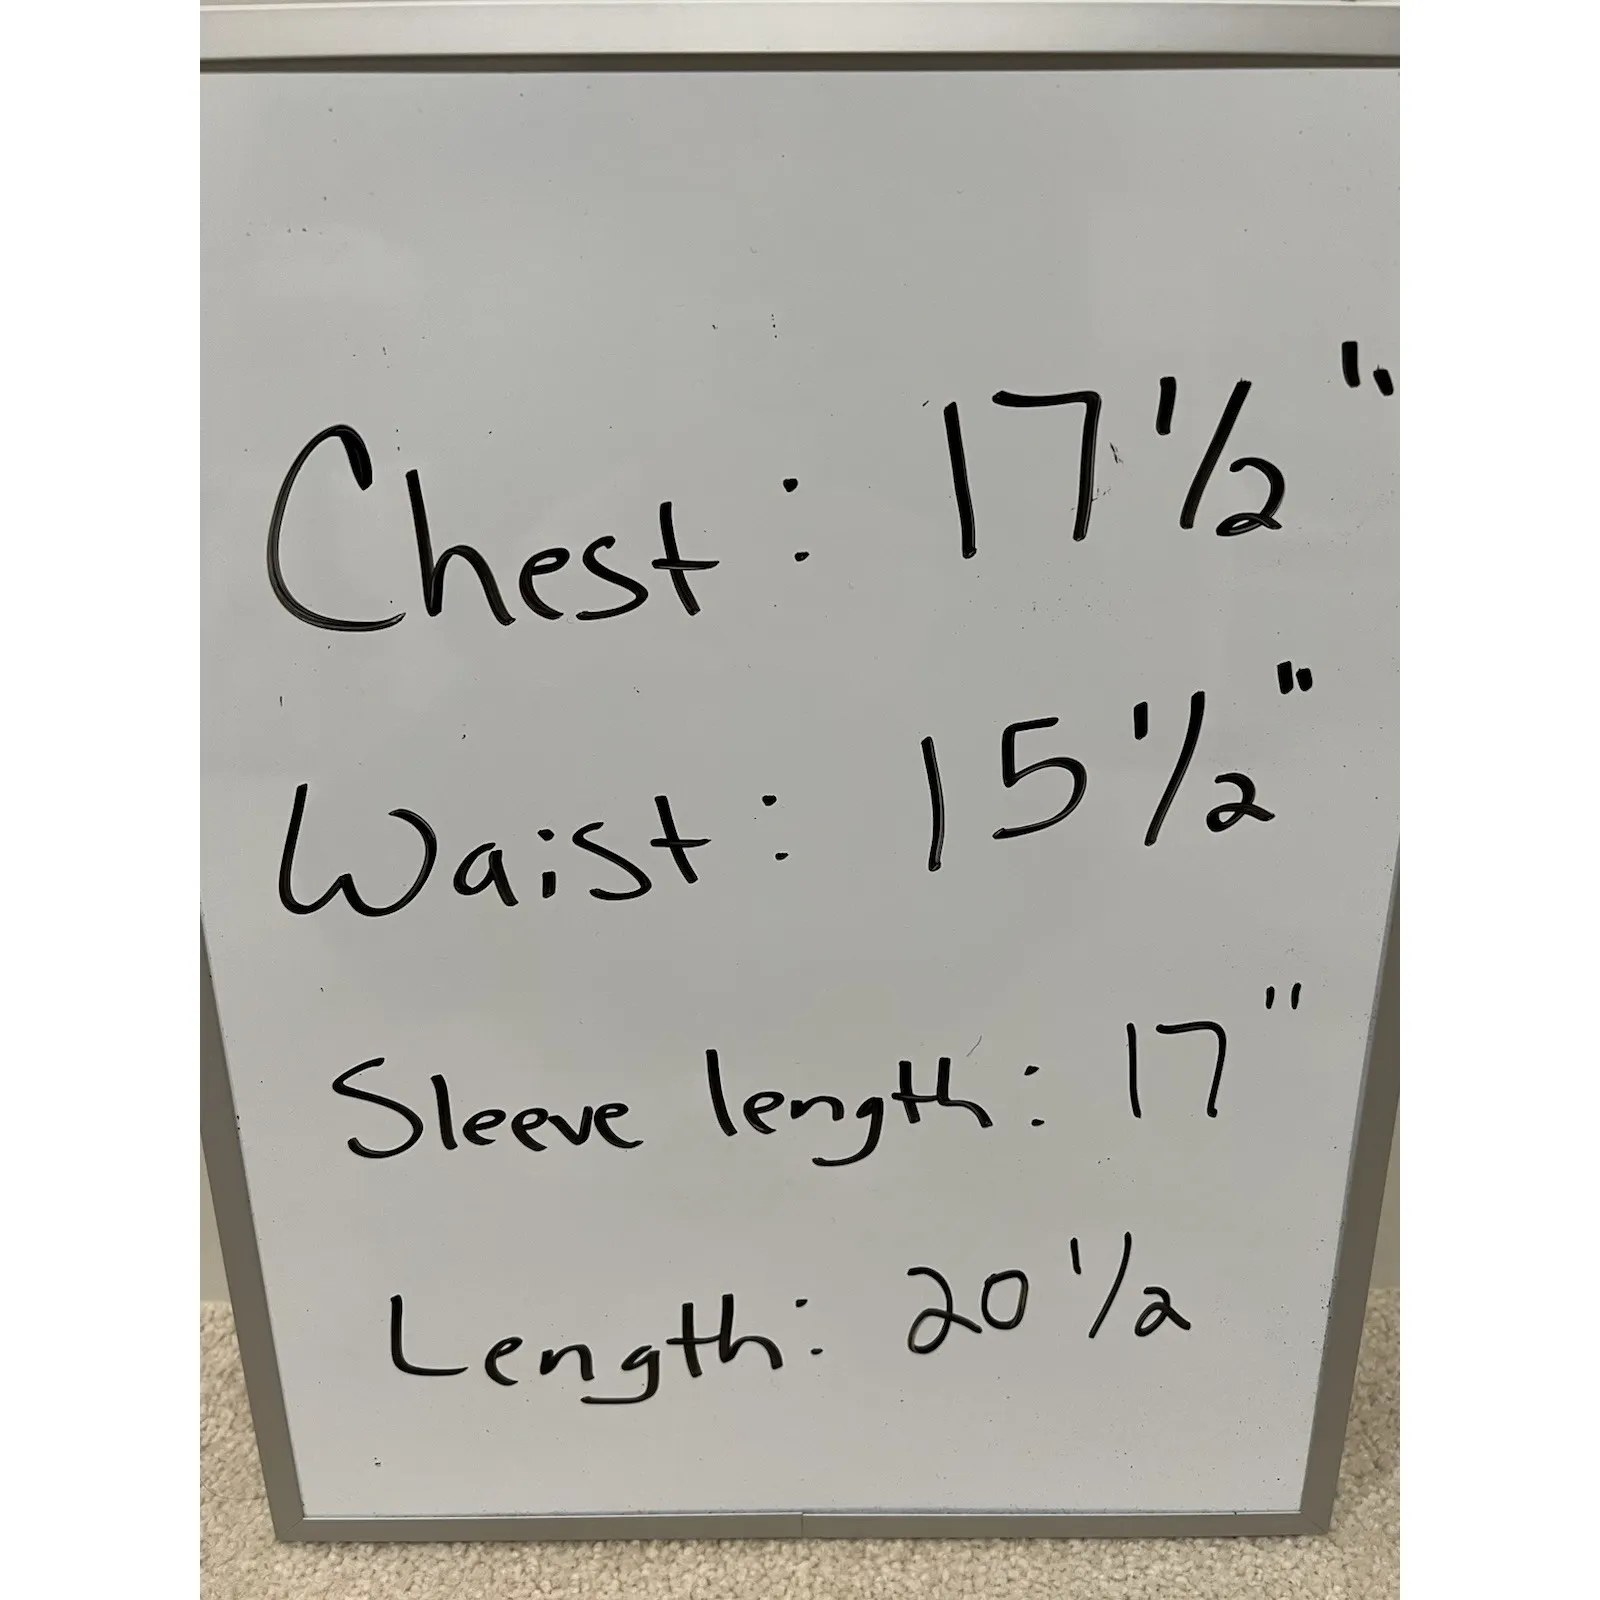 Chest: 17 1/2"
Waist: 15 1/2"
Sleeve length: 17"
Length: 20 1/2